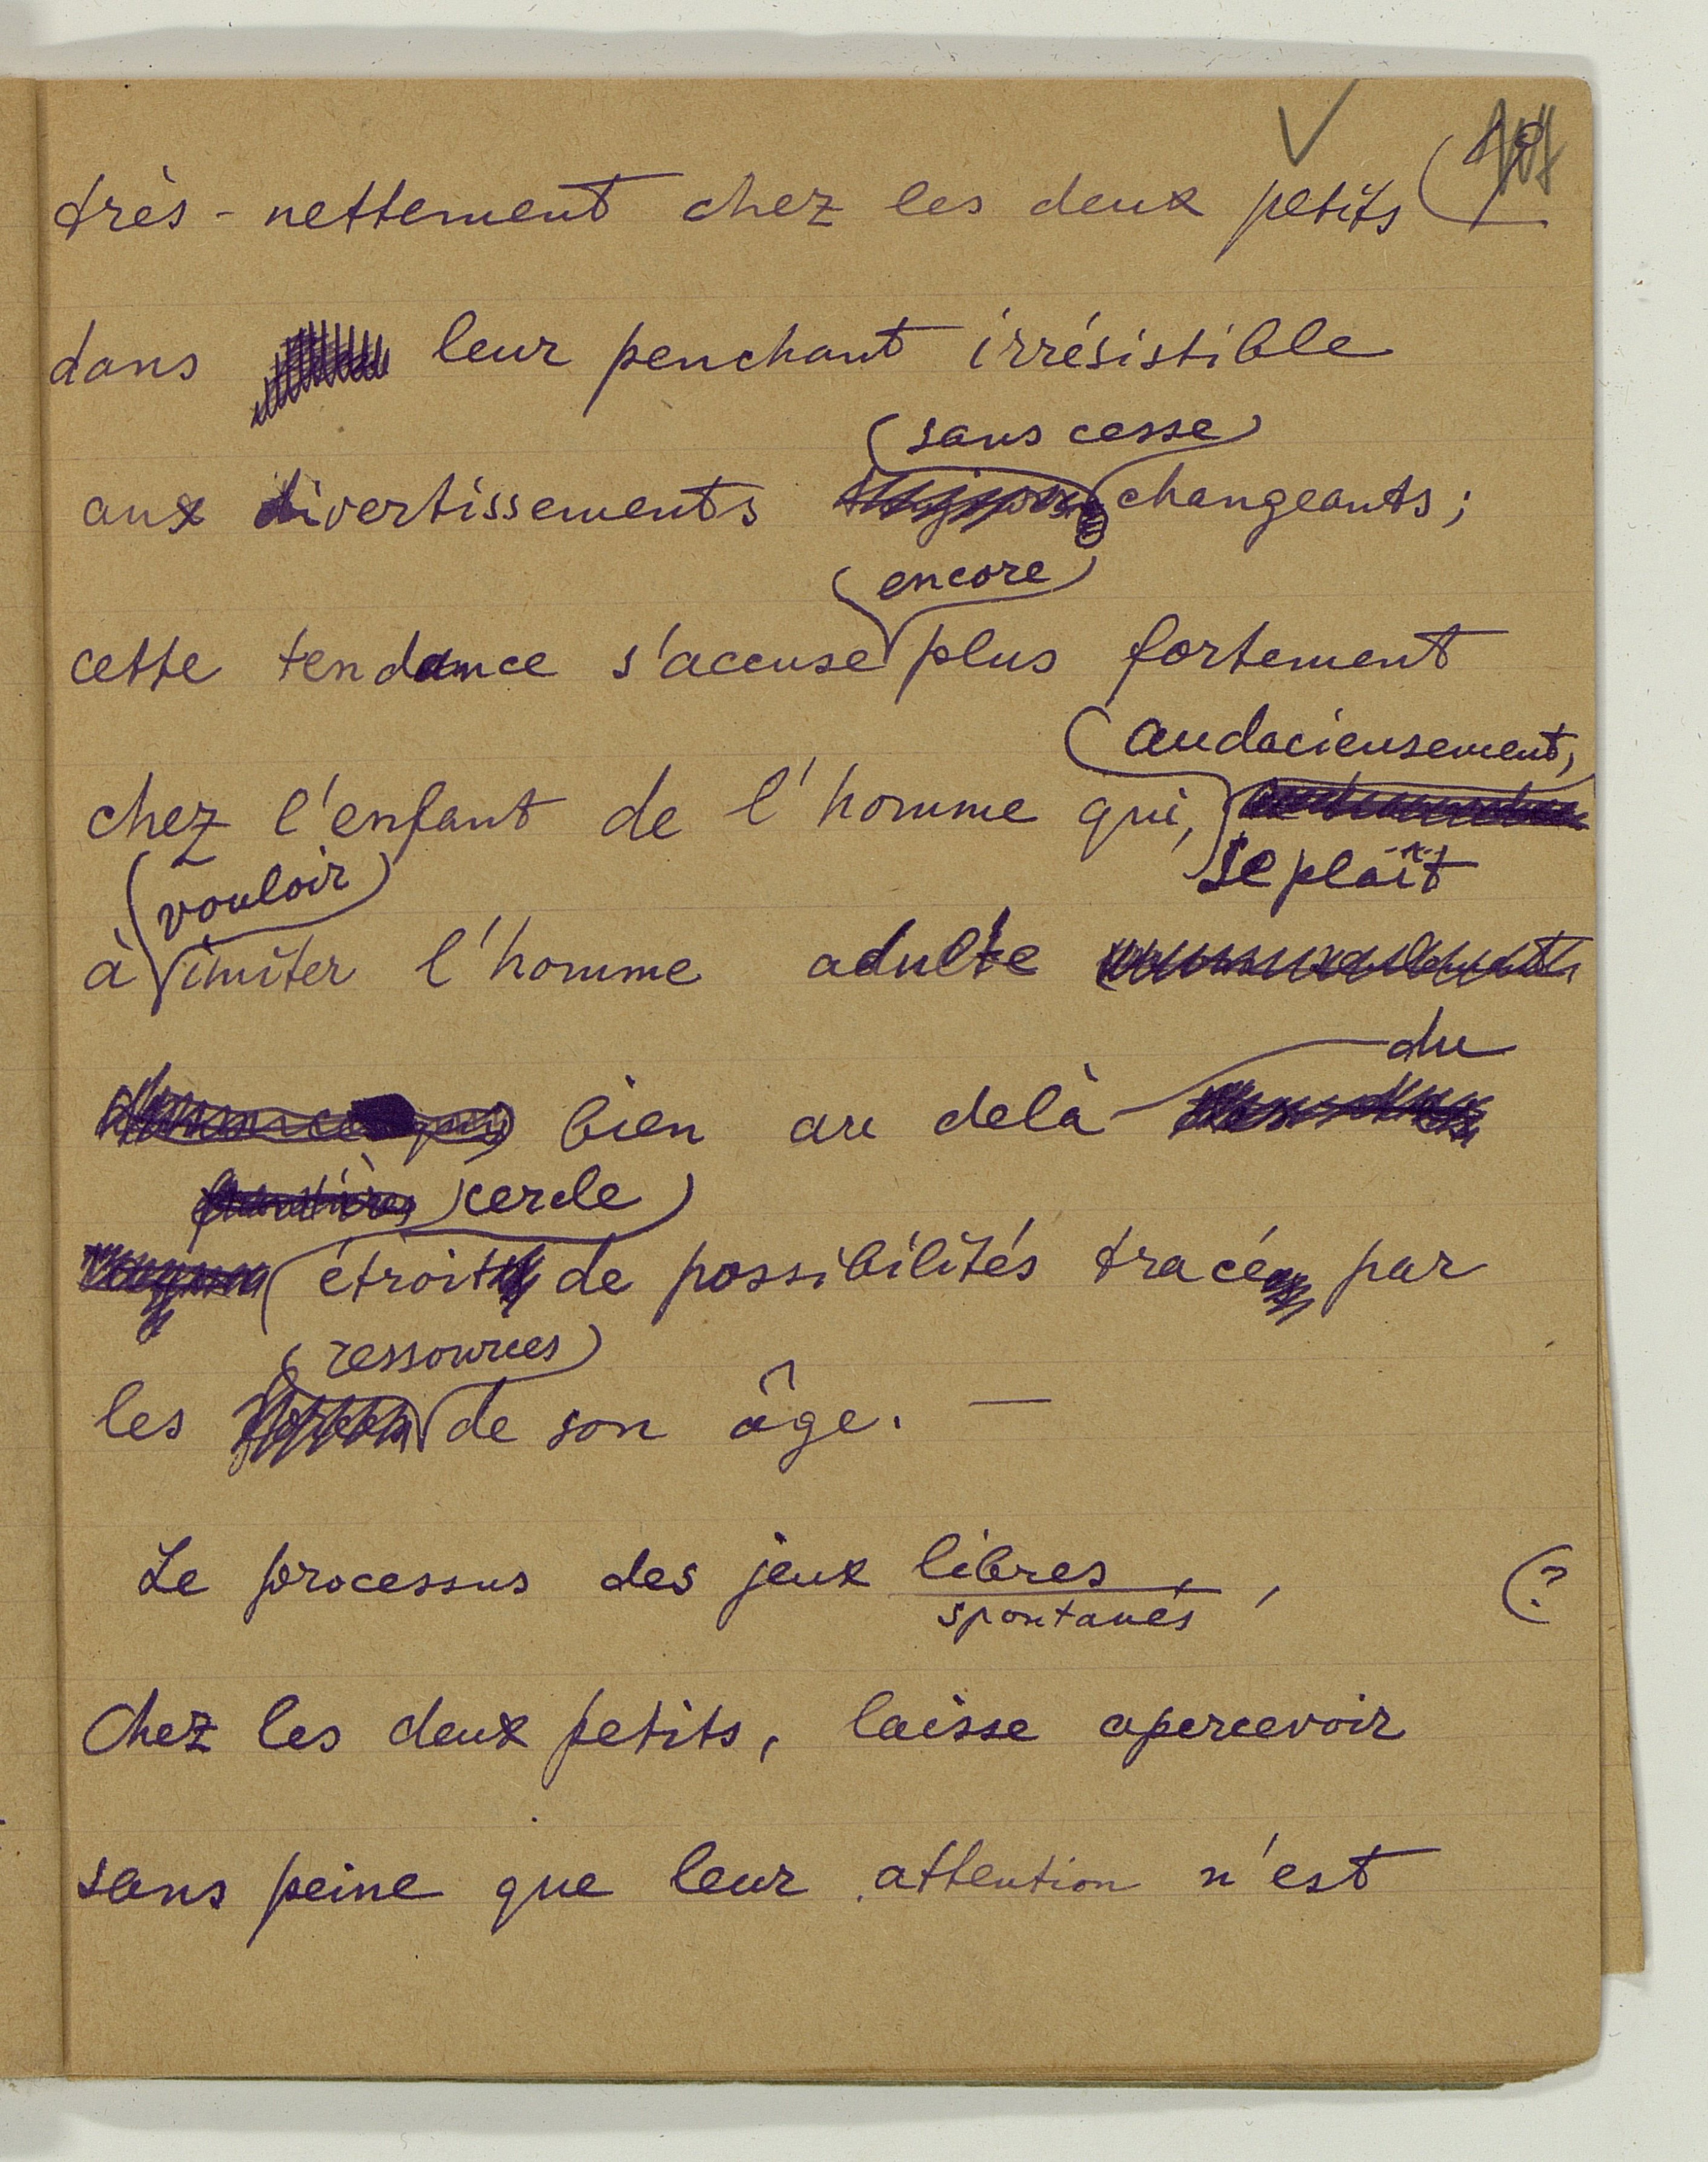 très-nettement chez les deux petits
dans leur penchant irrésistible
sans cesse
aux divertissements changeants;
encore
cette tendance s'accuse plus fortement
audacieusement,
chez l'enfant de l'homme qui,
se plaît
vouloir
à imiter l'homme adulte
du
bien au delà
cercle
étroit de possibilités tracé par
ressources
les de son âge. —
Le processus des jeux libres, , (?
spontanés
chez les deux petits, laisse apercevoir
sans peine que leur attention n'est